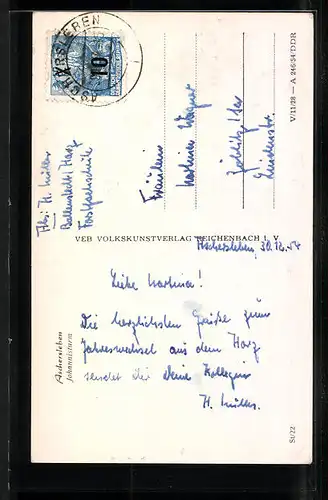 ASCHERSLEBEN
10
Abs: H. Müller
Ballenstedt/Harz
Forstfachschule
Fräulein
Martina
V/11/28 — A 246/54/DDR
VEB VOLKSKUNSTVERLAG REICHENBACH I. V.
Aschersleben, 30.12.54
Liebe Martina!
Die herzlichsten Grüße zum
Jahreswechsel aus dem Harz
sendet Dir Deine Kollegin
H. Müller.
Aschersleben
Johannisturm
St/22